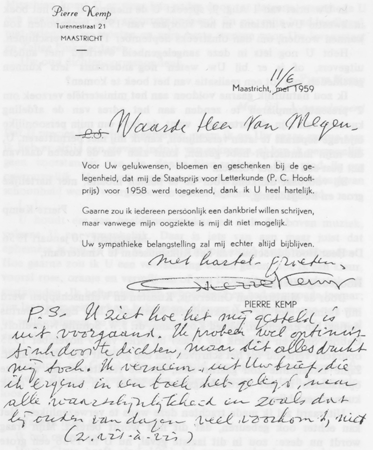 Pierre Kemp
Turennestraat 21
MAASTRICHT
11/6
Maastricht, mei 1959
Waarde Heer Van Megen
Voor Uw gelukwensen, bloemen en geschenken bij de ge-
legenheid, dat mij de Staatsprijs voor Letterkunde (P. C. Hooft-
prijs) voor 1958 werd toegekend, dank ik U heel hartelijk.
Gaarne zou ik iedereen persoonlijk een dankbrief willen schrijven,
maar vanwege mijn oogziekte is mij dit niet mogelijk.
Uw sympathieke belangstelling zal mij echter altijd bijblijven.
met hartel. groeten,
Pierre Kemp
PIERRE KEMP
P.S. U ziet hoe het mij gesteld is
uit voorgaand. Ik probeer wel optimis-
tisch door te dichten, maar dit alles drukt
mij toch. Ik verneem uit Uw brief, die
ik ergens in een boek heb gelegd, naar
alle waarschijnlijkheid en zoals dat
bij ouden van dagen veel voorkomt, niet
(z. vis-à-vis)